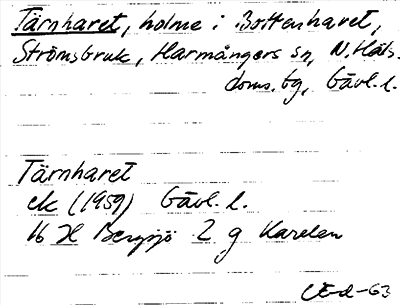 Tärnharet, holme i Bottenhavet,
Strömsbruk, Harmångers sn, N. Häls.
doms. tg, Gävl. l.
Tärnharet
ek (1959) Gävl. l.
16 H Bergsjö 2 g Karelen
CE-d-63